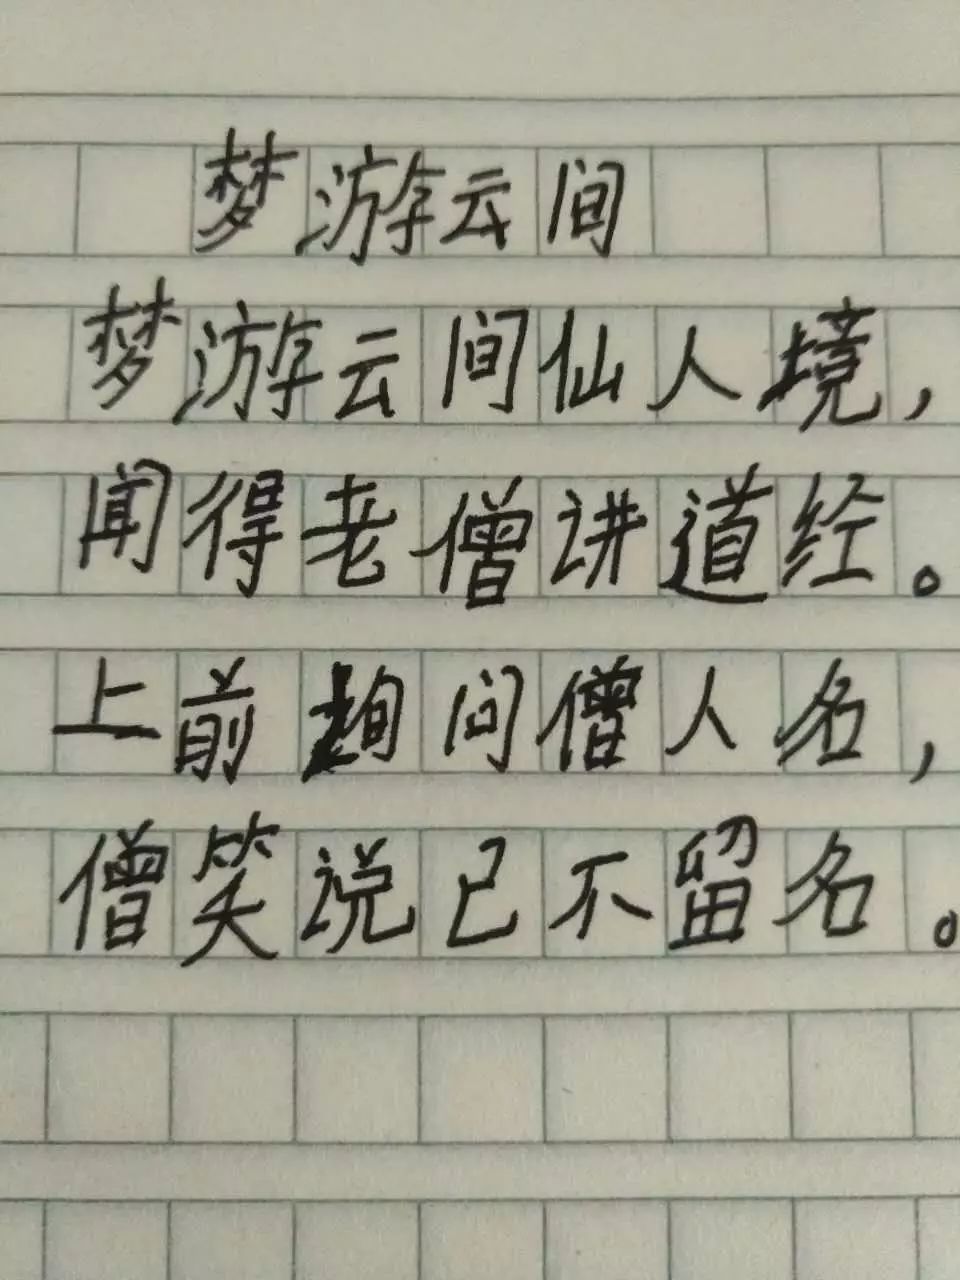 梦游云间
梦游云间仙人境，
闻得老僧讲道经。
上前询问僧人名，
僧笑说已不留名。